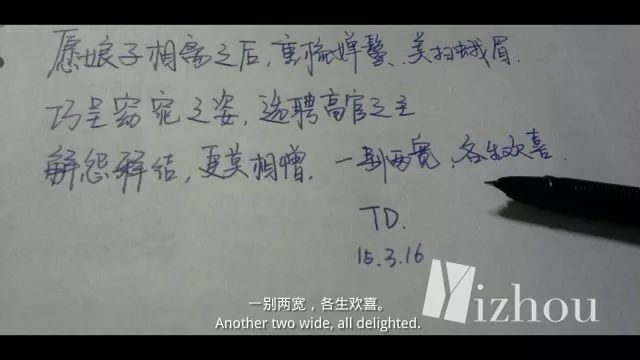 愿娘子相离之后,重梳婵鬓、美扫蛾眉.
巧呈窈窕之姿,选聘高官之主
解怨释结,更莫相憎. 一别两宽,各生欢喜.
TD.
15.3.16
Yizhou
一别两宽,各生欢喜。
Another two wide, all delighted.